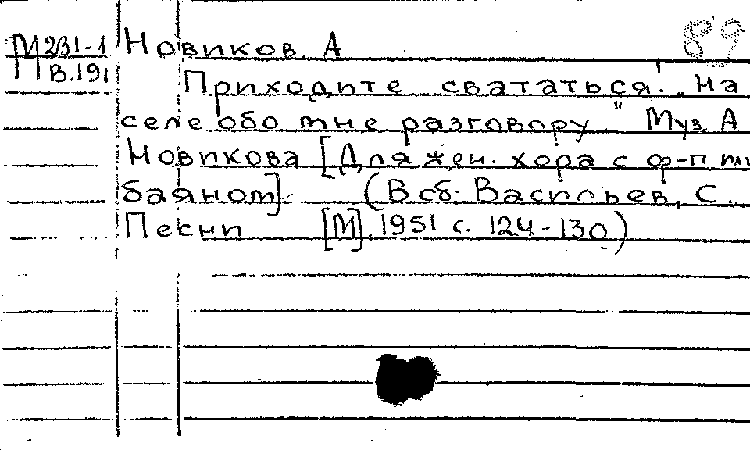 М231-1 Новиков. А 89
В.191 Приходите свататься!.. "На
селе обо мне разговору" Муз. А
Новикова [Для жен. хора с ф-п или
баяном]. (В сб: Васильев, С.
Песни [М]. 1951 с. 124-130)